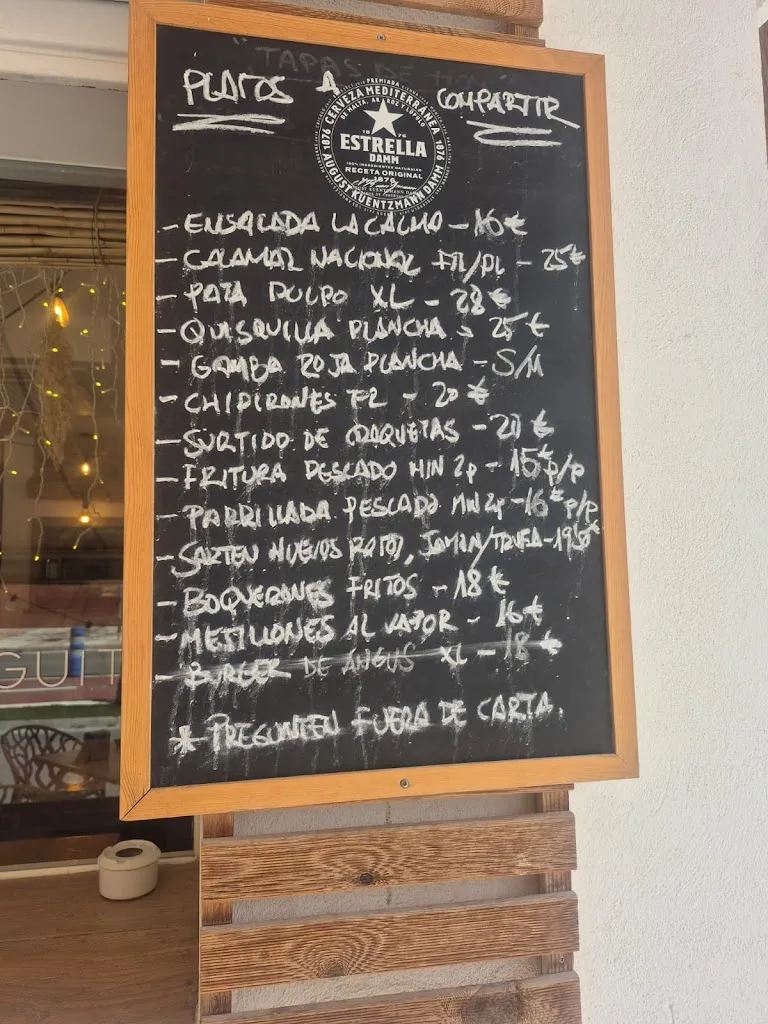 "TAPAS DE
PLATOS A COMPARTIR
PREMIADA
CERVEZA MEDITERRÁNEA
DE MALTA, ARROZ Y LÚPULO
1876
1876
1876
ESTRELLA
DAMM
100% INGREDIENTES NATURALES
RECETA ORIGINAL
1876
AUGUST KUENTZMANN DAMM
- ENSALADA LA CALMA - 16€
- CALAMAR NACIONAL FR/PL - 25€
- PATA PULPO XL - 28€
- QUISQUILLA PLANCHA - 25€
- GAMBA ROJA PLANCHA - S/M
- CHIPIRONES FR - 20€
- SURTIDO DE CROQUETAS - 20€
- FRITURA PESCADO MIN 2p - 15€ p/p
- PARRILLADA PESCADO MIN 2p - 16€ p/p
- SARTEN HUEVOS ROTOS, JAMON/TRUFA - 19'50€
- BOQUERONES FRITOS - 18€
- MEJILLONES AL VAPOR - 16€
- BURGER DE ANGUS XL - 18€
* PREGUNTEN FUERA DE CARTA.
GUIT